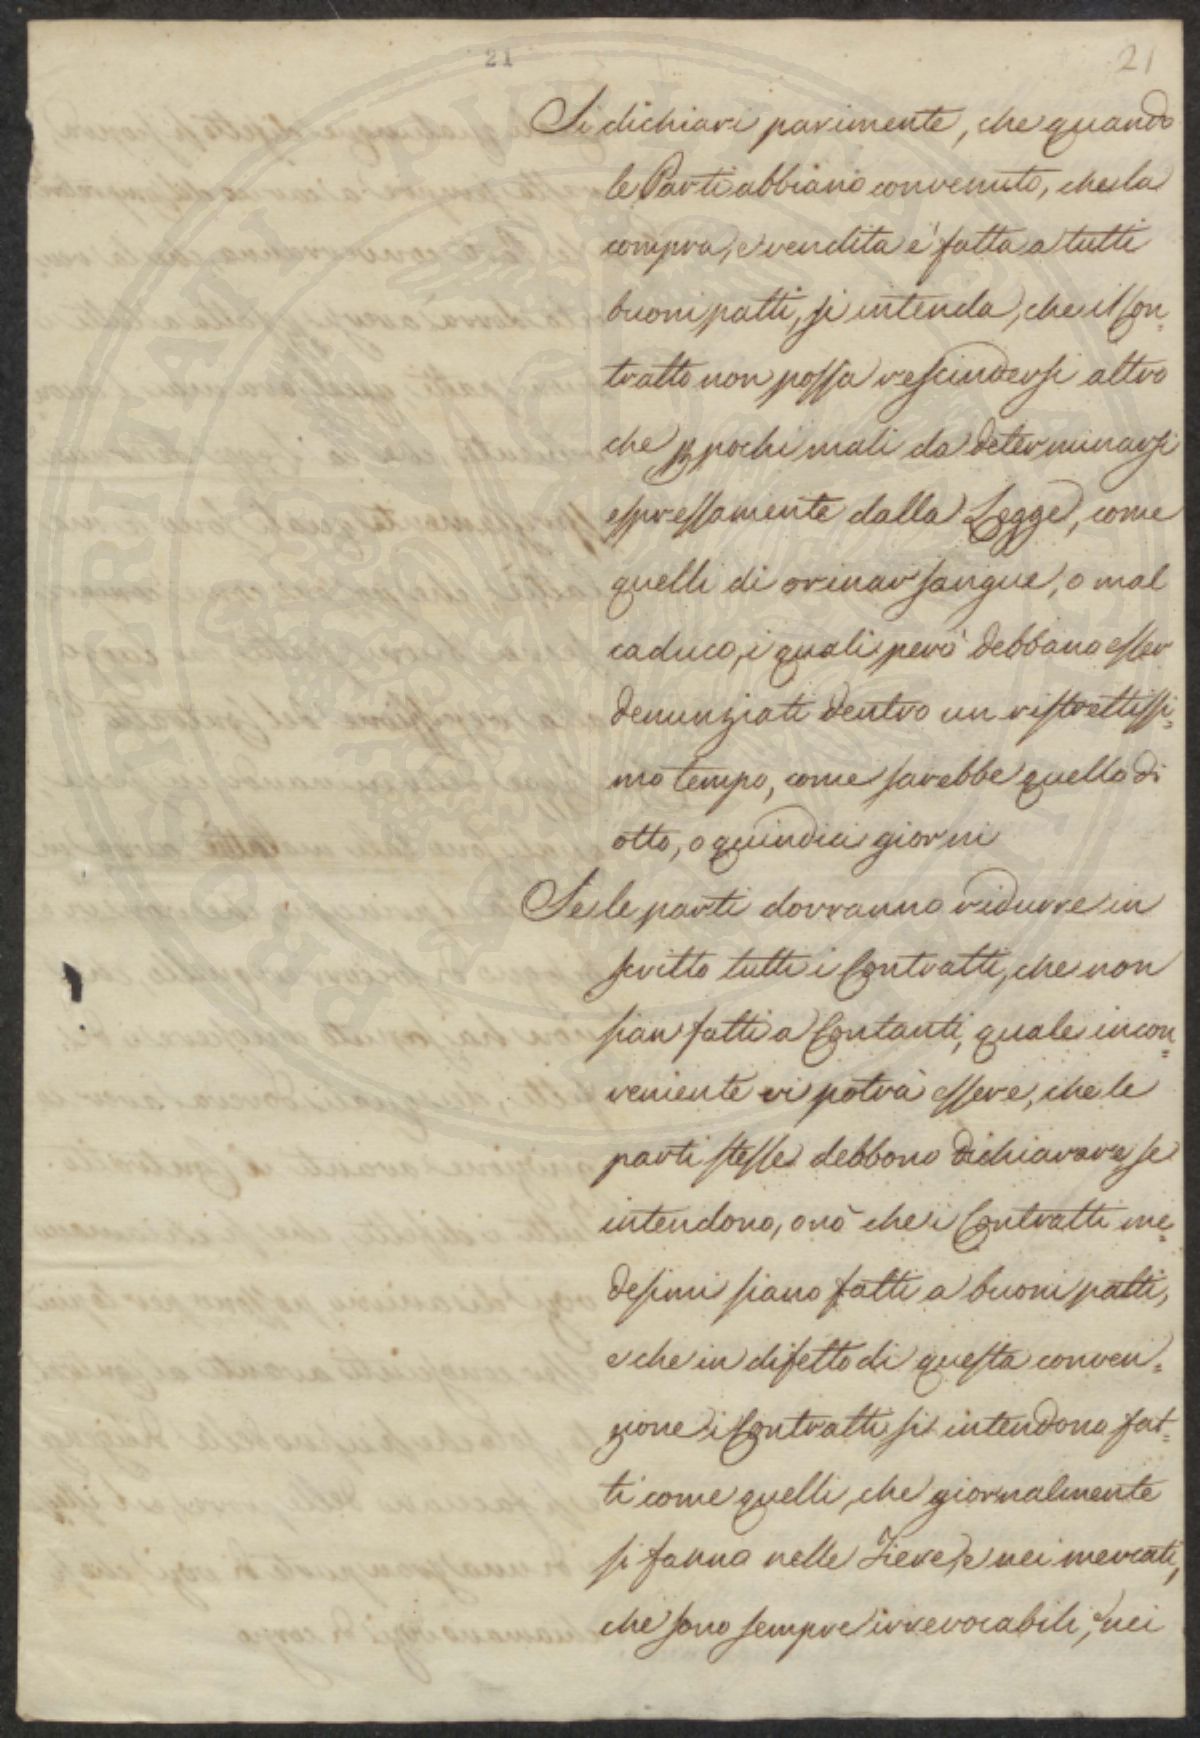 21
21
Si dichiari parimente, che quando
le Parti abbiano convenuto, che la
compra, e vendita è fatta a tutti
buoni patti, si intenda, che il Con-
tratto non possa rescindersi altro
che p pochi mali da determinarsi
espressamente dalla Legge, come
quelli di orinar sangue, o mal
caduco, i quali però debbano esser
denunziati dentro un ristrettissi-
mo tempo, come sarebbe quello di
otto, o quindici giorni
Se le parti dovranno ridurre in
scritto tutti i Contratti, che non
sian fatti a Contanti, quale incon-
veniente vi potrà essere, che le
parti stesse debbono dichiarare se
intendono, o nò che i Contratti me-
desimi siano fatti a buoni patti,
e che in difetto di questa conven-
zione i Contratti si intendono fat-
ti come quelli, che giornalmente
si fanno nelle Fiere, e nei mercati,
che sono sempre irrevocabili, nei
PROSPERITATI PUBLICAE